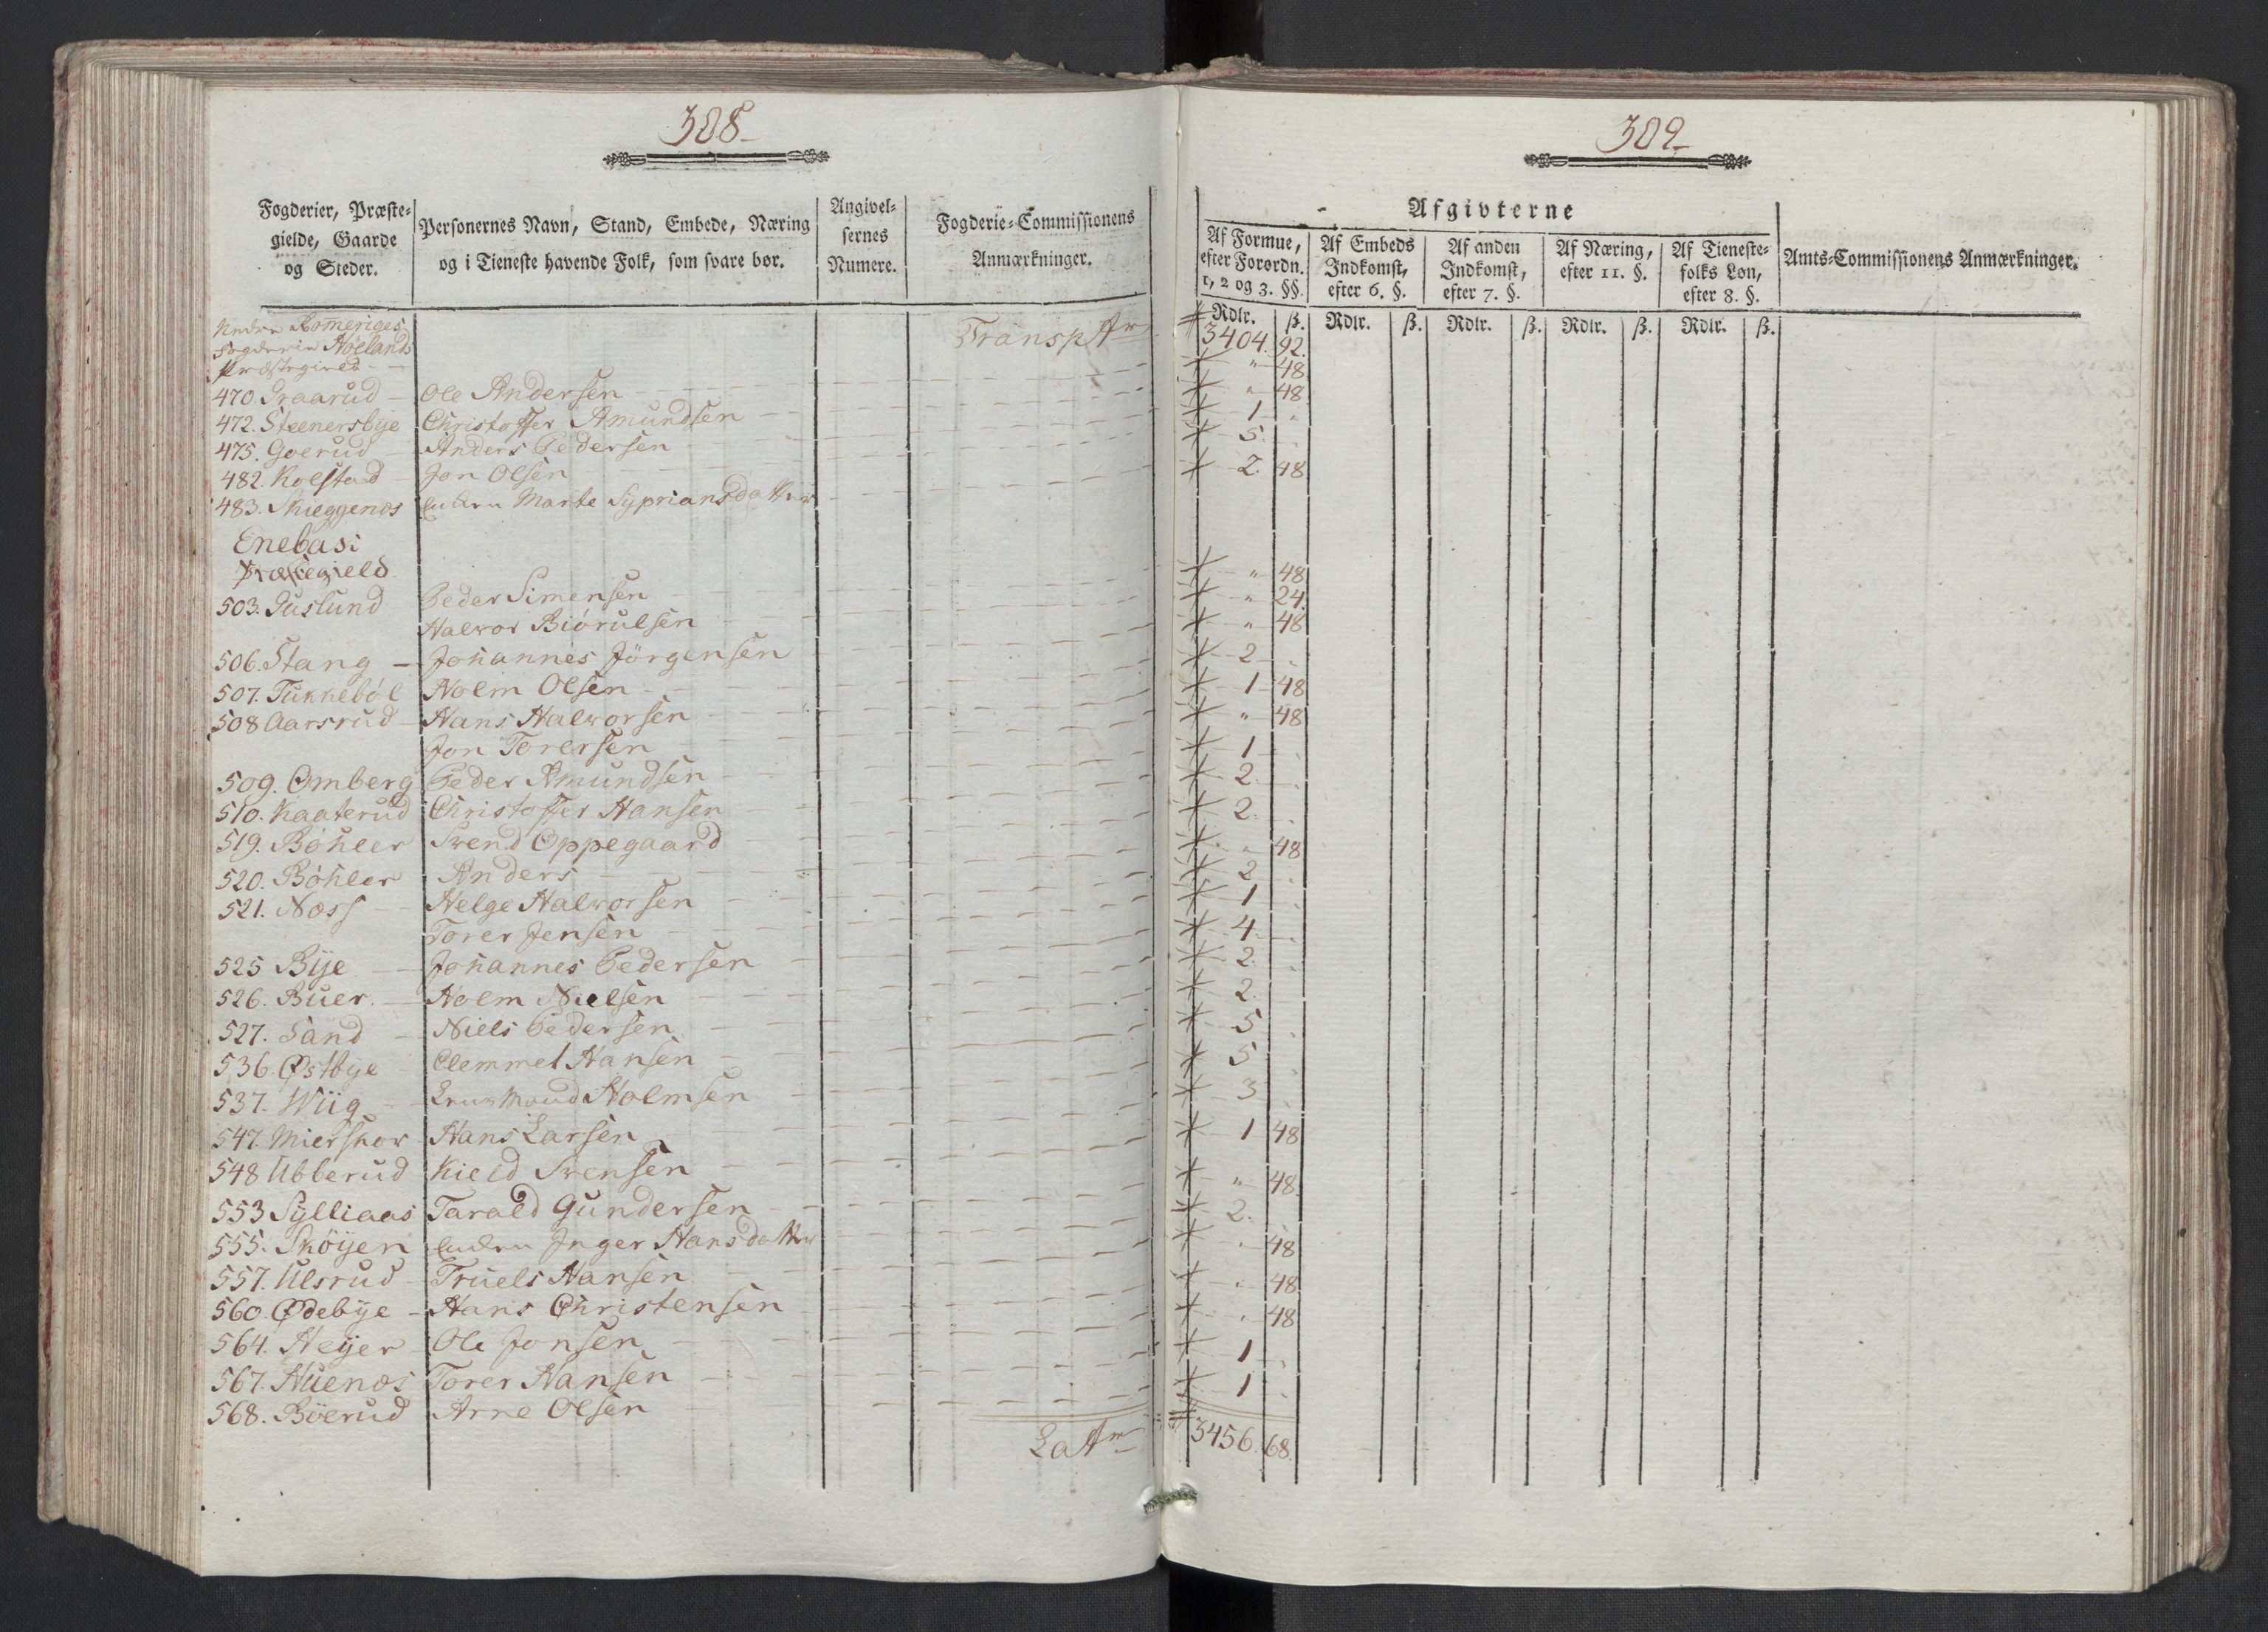 308
Fogderier, Præste-
gielde, Gaarde
og Steder.
Personernes Navn, Stand, Embede, Næring
og i Tieneste havende Folk, som svare bør.
Angivel-
sernes
Numere.
Fogderie-Commissionens
Anmærkninger.
Nedre Romeriges
Fogderie Høelands
Præstegield
Transp
470. Ole Andersen
472. Steenersbye Christoffer Amundsen
475. Goerud Anders Pedersen
482. Kolstad Jon Olsen
483. Skieggenæs Enken Marte Syprians Datter
Enebak
Præstegield
503. Peder Simensen
Halvor Biörulsen
506. Stang Johannes Jörgensen
507. Tukkeböl Holm Olsen
508 Aarsrud Hans Halvorsen
Jon Torersen
509. Omberg Peder Amundsen
510. Kaaterud Christoffer Hansen
519. Böhler Svend Oppegaard
520. Böhler Anders
521. Næss Helge Halvorsen
Torer Jensen
525 Bye Johannes Pedersen
526. Buer Holm Nielsen
527. Sand Niels Pedersen
536. Østbye Clemmet Hansen
537. Wiig Holmsen
547. Mierskov Hans Larsen
548 Ubberud Kield Svensen
553 Sylliaas Tarald Gundersen
555. Sköyen Enken Inger Hans datter
557. Ulsrud Truels Hansen
560. Ødebye Hans Christensen
564. Heyer Ole Jonsen
567. Huenæs Torer Hansen
568. Böerud Arne Olsen
Lat
309
Afgivterne
Af Formue,
efter Forordn.
1, 2 og 3. §§.
Af Embeds
Indkomst,
efter 6. §.
Af anden
Indkomst,
efter 7. §.
Af Næring,
efter 11. §.
Af Tieneste-
folks Løn,
efter 8. §.
Amts-Commissionens Anmærkninger.
Rdlr. ß. Rdlr. ß. Rdlr. ß. Rdlr. ß. Rdlr. ß.
3404. 92.
" 48
" 48
1 "
5.
2. 48
" 48
" 24.
" 48
2
1 48
" 48
1
2.
2.
" 48
2
1
4
2.
2.
5
5
3
1 48
" 48.
2.
" 48
" 48
" 48
1
1
3456. 68.